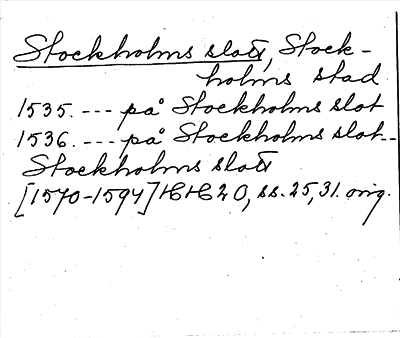 Stockholms slott, Stock-
holms stad
1535. --- på Stockholms slot
1536. --- på Stockholms slot--
Stockholms slott
[1570-1594] HH 20, ss. 25, 31. orig.